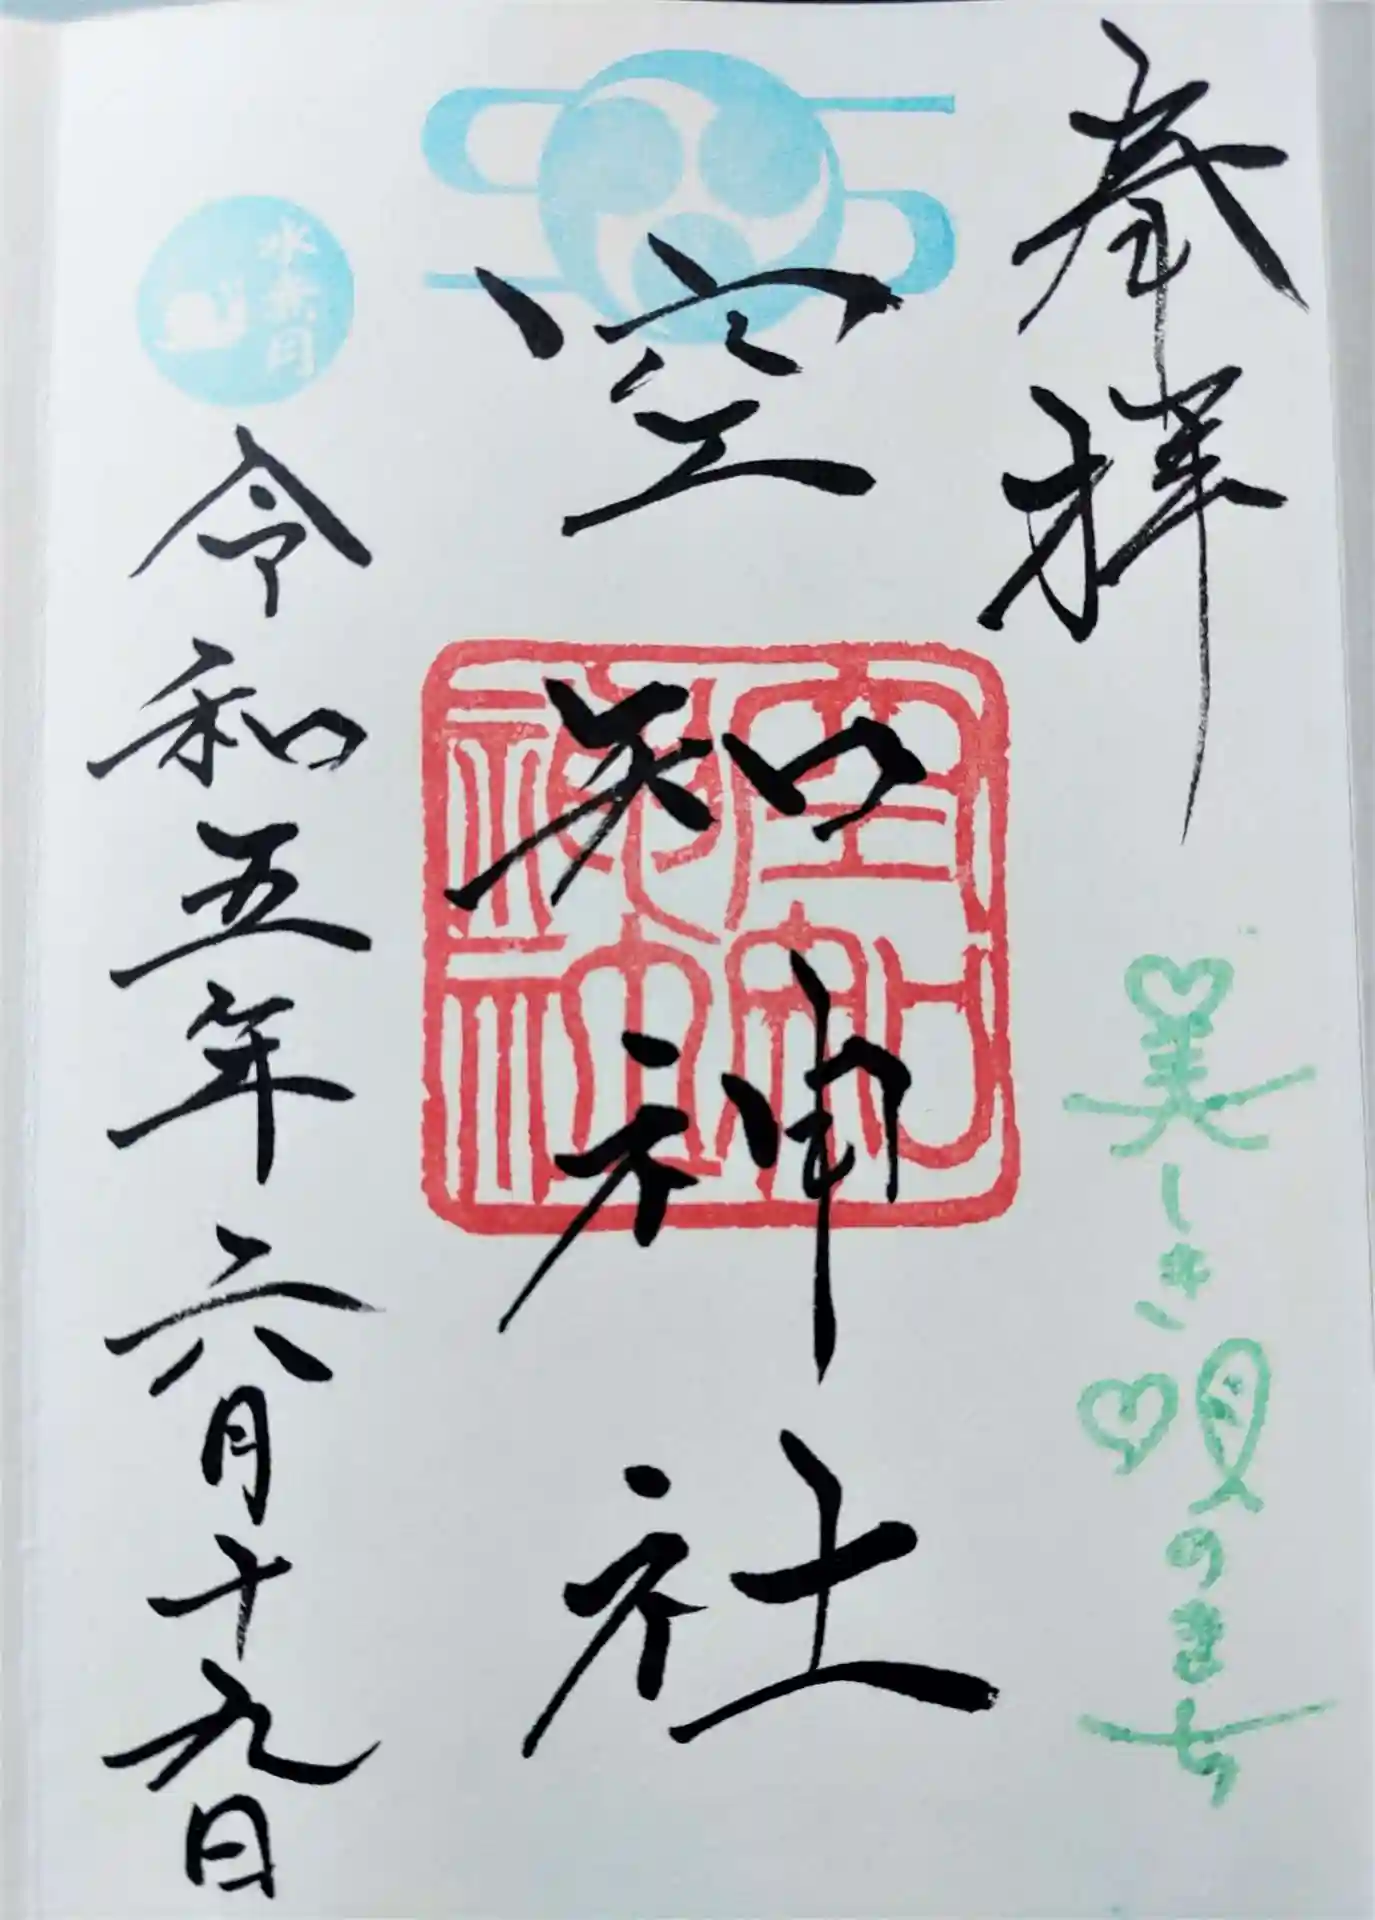 奉拝
美しき唄のまち
空知神社
空知神社
水無月
令和五年六月十九日